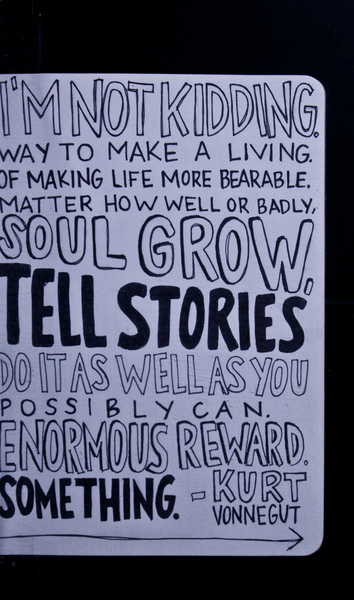 I'M NOT KIDDING.
WAY TO MAKE A LIVING.
OF MAKING LIFE MORE BEARABLE.
MATTER HOW WELL OR BADLY,
SOUL GROW,
TELL STORIES
DO IT AS WELL AS YOU
POSSIBLY CAN.
ENORMOUS REWARD.
SOMETHING. - KURT
VONNEGUT